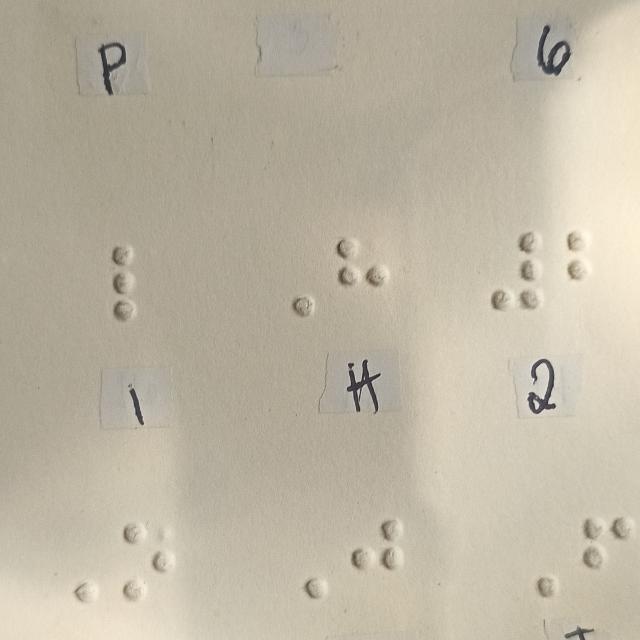 P 6
⠇ ⠠⠓ ⠼⠃
1 H 2
⠠⠕ ⠠⠚ ⠠⠋